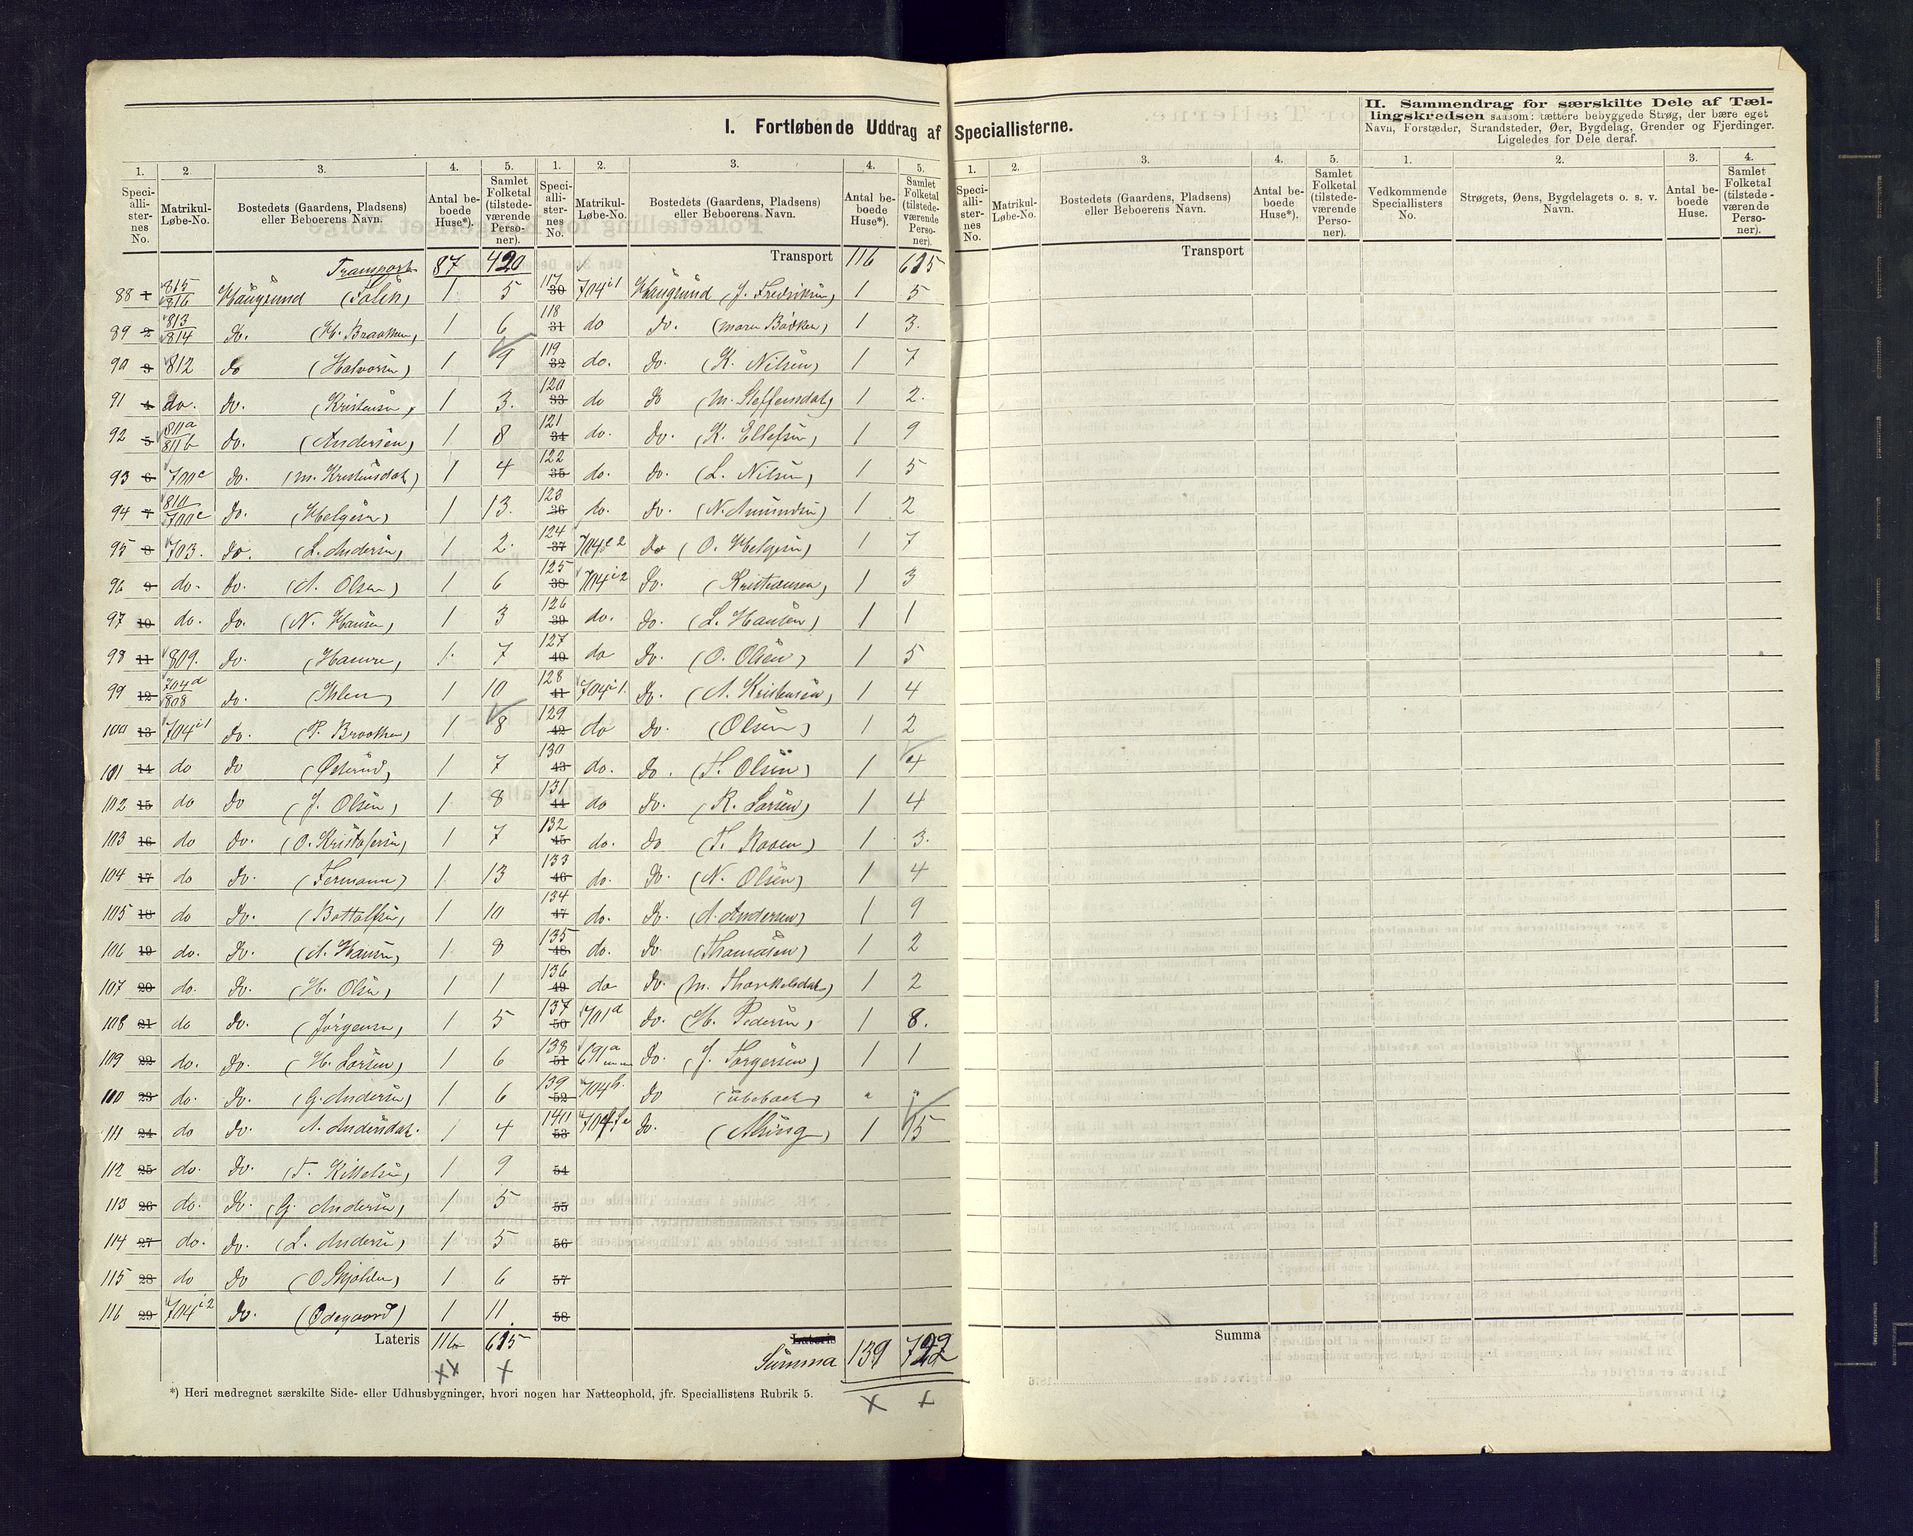 I. Fortløbende Uddrag af Speciallisterne.
II. Sammendrag for særskilte Dele af Tæl-
lingskredsen saasom: tættere bebyggede Strøg, der bære eget
Navn, Forstæder, Strandsteder, Øer, Bygdelag, Grender og Fjerdinger.
Ligeledes for Dele deraf.
1. 2 3. 4. 5. 1. 2. 3. 4. 5. 1. 2. 3. 4. 5. 1. 2. 3. 4.
Speciallisternes No. Matrikul-Løbe-No. Bostedets (Gaardens, Pladsens) eller Beboerens Navn. Antal beboede Huse*). Samlet Folketal (tilstedeværende Personer).
Speciallisternes No. Matrikul-Løbe-No. Bostedets (Gaardens, Pladsens) eller Beboerens Navn. Antal beboede Huse*). Samlet Folketal (tilstedeværende Personer).
Speciallisternes No. Matrikul-Løbe-No. Bostedets (Gaardens, Pladsens) eller Beboerens Navn. Antal beboede Huse*). Samlet Folketal (tilstedeværende Personer).
Vedkommende Speciallisters No. Strøgets, Øens, Bygdelagets o. s. v. Navn. Antal beboede Huse. Samlet Folketal (tilstedeværende Personer).
Transport 87 420
88 1 815/816 Haugsund 1 5
89 2 813/814 do. (H. Braathen) 1 6
90 3 812 do (Halvorsen) 1 9
91 4 do. do. (Kristensen) 1 3.
92 5 811a/811b do. (Andersen) 1 8
93 6 700c do. (M. Kristensdat) 1 4
94 7 810/700c do. (Helgesen) 1 13.
95 8 703. do. (L. Andersen) 1 2.
96 9 do. do. (A. Olsen) 1 6
97 10 do. do. (N. Hansen) 1 3
98 11 809. do. 1. 7
99 12 704d/808 do. (Ihlen) 1 10
100 13 704i1 do. (P. Braathen) 1 8
101 14 do do (Østerud) 1 7
102 15 do do (J. Olsen) 1 8
103 16 do do. (O. Kristofersen) 1 7
104 17 do do. (Fermann) 1 13
105 18 do do. (Bottolfsen) 1 10
106 19 do. do. (A. Hansen) 1 8
107 20 do. do. (H. Olsen) 1 1
108 21 do do. (Jørgensen) 1 5
109 22 do. do. (H. Larsen) 1 6
110 23 do. do. (G. Andersen) 1 6
111 24 do do. A. Andersdat. 1 4
112 25 do. do. (T. Kittelsen) 1 9
113 26 do. do. (G. Andersen) 1 5
114 27 do. do. (L. Andersen) 1 5
115 28 do do (O Skjolden) 1 6
116 29 704i2 do. (Ødegaard) 1 11.
Lateris 116 615
Transport 116 615
117 30 704i1 Haugsund (J. Fredriksen) 1 5
118 31 do do. (Maren Bødker) 1 3.
119 32 do. do. (K. Nilsen) 1 7
120 33 do do (M. Steffensdat) 1 2.
121 34 do. do. (K. Ellefsen) 1 9
122 35 do. do. (L. Nilsen) 1 5
123 36 do. do. (N. Amundsen) 1 2
124 37 704e2 do (O. Helgesen) 1 7
125 38 704i2 do. (Kristiansen) 1 3
126 39 do. do. (L. Hansen) 1 1
127 40 do do. (O. Olsen) 1 5
128 41 704i1. do. (A. Kristensen) 1 4
129 42 do do. (Olsen) 1 2
130 43 do. do. (H. Olsen) 1 4
131 44 do do. (R. Larsen) 1 4
132 45 do. do (T. Raaen) 1 3.
133 46 do. do. (N. Olsen) 1 4
134 47 do. do. (A. Andersen) 1 9
135 48 do. do. (Thomasen) 1 2
136 49 do do. (M. Thorkelsdat) 1 2
137 50 701d do. (H. Pedersen) 1 8.
138 51 691a do. (J. Torgersen) 1 1
139 52 704h. do (ubeboet) " "
141 53 do. 1 15
54
55
56
57
58
Lateris
Summa 139 722
Transport
Summa
*) Heri medregnet særskilte Side- eller Udhusbygninger, hvori nogen har Natteophold, jfr. Speciallistens Rubrik 5.